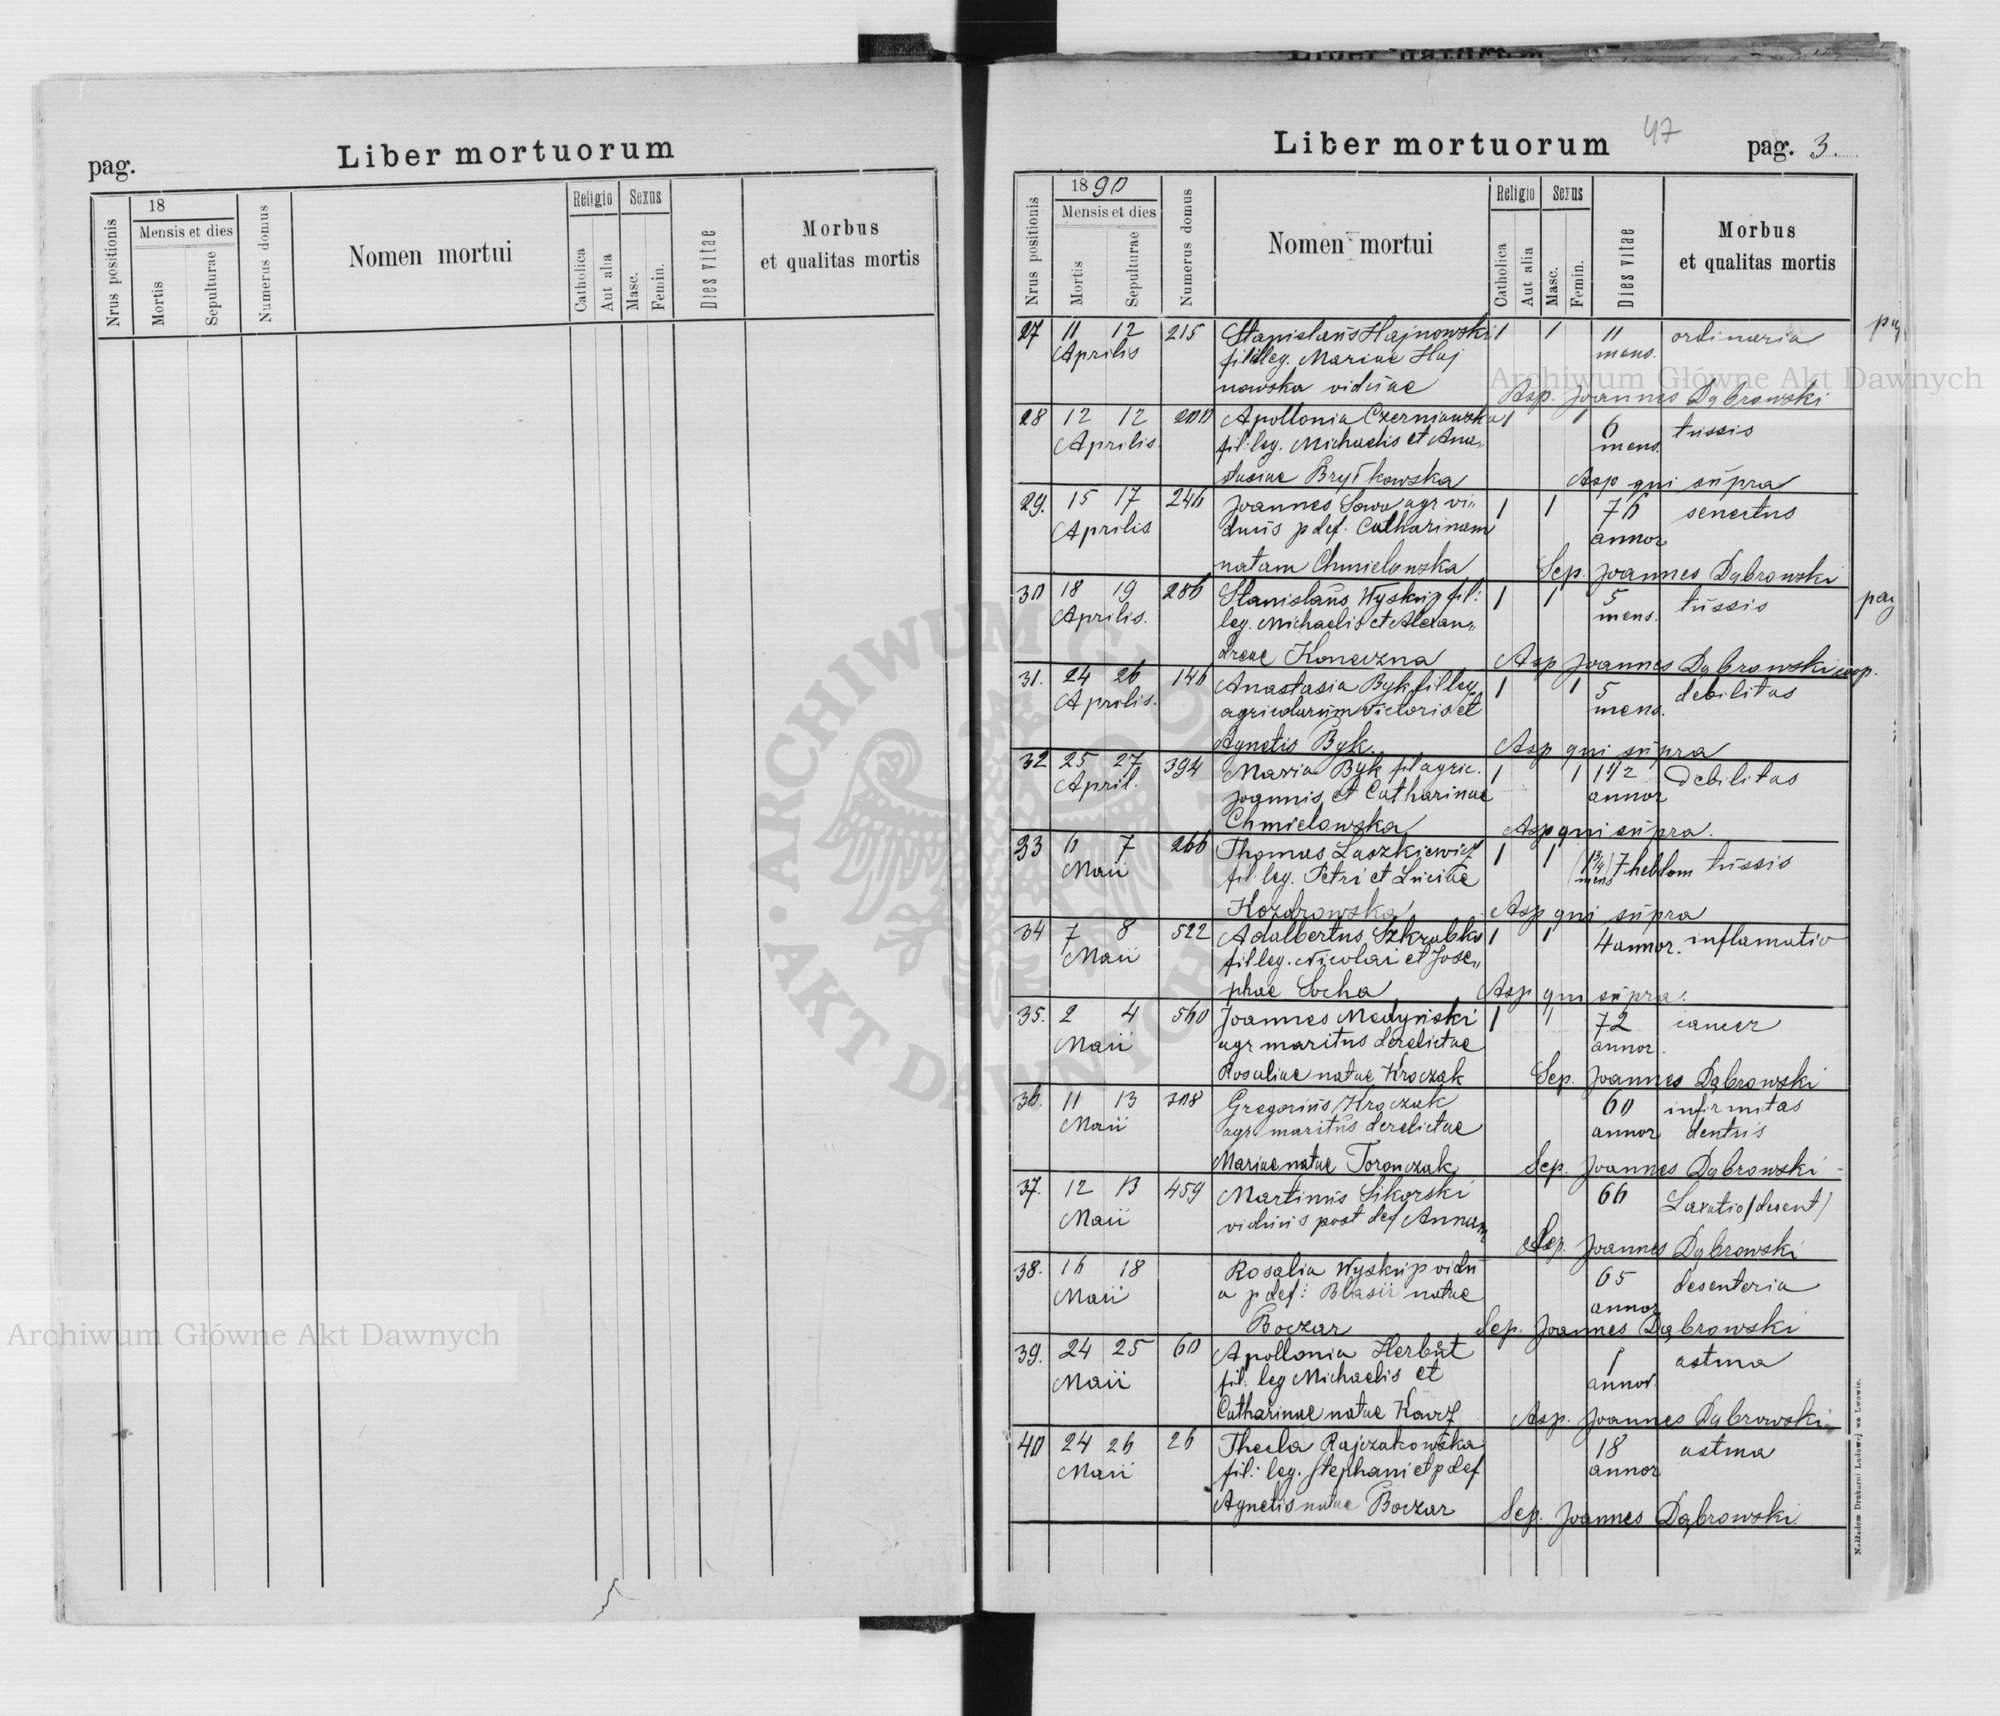 Liber mortuorum
pag.
Nrus positionis
18
Mensis et dies
Mortis
Sepulturae
Numerus domus
Nomen mortui
Religio
Catholica
Aut alia
Sexus
Masc.
Femin.
Dies vitae
Morbus
et qualitas mortis
Liber mortuorum
47
pag. 3.
Nrus positionis
1890
Mensis et dies
Mortis
Sepulturae
Numerus domus
Nomen mortui
Religio
Catholica
Aut alia
Sexus
Masc.
Femin.
Dies vitae
Morbus
et qualitas mortis
27 11 12 215 Stanislaus Hajnowski 1 1 11 ordinaria
Aprilis fil leg. Mariae Haj mens.
nowska viduae Asp. Joannes Dąbrowski
28 12 12 200 Apollonia Czerniawska 1 1 6 tussis
Aprilis fil: leg. Michaelis et Ana„ mens.
stasiae Bryłkowska Asp qui supra
29. 15 17 246 Joannes Sowa agr vi„ 1 1 76 senectus
Aprilis duus p def. Catharinam annor
natam Chmielowska Sep. Joannes Dąbrowski
30 18 19 286 Stanislaus Wyskup fil: 1 1 5 tussis
Aprilis. leg. Michaelis et Alexan„ mens.
drae Koneczna Asp Joannes Dąbrowski coop.
31. 24 26 146 Anastasia Byk fil leg 1 1 5 debilitas
Aprilis. agricolarum Victoris et mens.
Agnetis Byk. Asp qui supra
32 25 27 394 Maria Byk fil agric. 1 1 1 1/2 debilitas
April. Joannis et Catharinae annor
Chmielowska Asp qui supra.
33 6 7 266 Thomas Laszkiewicz 1 1 7 hebdom tussis
Maii fil leg. Petri et Luciae mens
Kozdrowska Asp qui supra
34 7 8 522 Adalbertus Szkrabko 1 1 4 annor. inflamatio
Maii fil leg. Nicolai et Jose„
phae Socha Asp qui supra.
35. 2 4 560 Joannes Medyński 1 1 72 cancer
Maii agr maritus derelictae annor.
Rosaliae natae Kroczak Sep. Joannes Dąbrowski
36. 11 13 308 Gregorius Kroczak 60 infirmitas
Maii agr maritus derelictae annor dentris
Mariae natae Toronczak Sep. Joannes Dąbrowski
37. 12 13 459 Martinus Sikorski 66 Laxatio (desent)
Maii viduus post def Annam
Sep. Joannes Dąbrowski
38. 16 18 Rosalia Wyskup vidu 65 desenteria
Maii a p def: Blasii natae annor
Boczar Sep. Joannes Dąbrowski
39. 24 25 60 Apollonia Herbut 1 astma
Maii fil. leg Michaelis et annor.
Catharinae natae Kawz Asp. Joannes Dąbrowski
40 24 26 26 Thecla Rajczakowska 18 astma
Maii fil: leg. Stephani et p def annor
Agnetis natae Boczar Sep. Joannes Dąbrowski
Nakładem Drukarni Ludowej we Lwowie.
Archiwum Główne Akt Dawnych
Archiwum Główne Akt Dawnych
ARCHIWUM GŁÓWNE AKT DAWNYCH